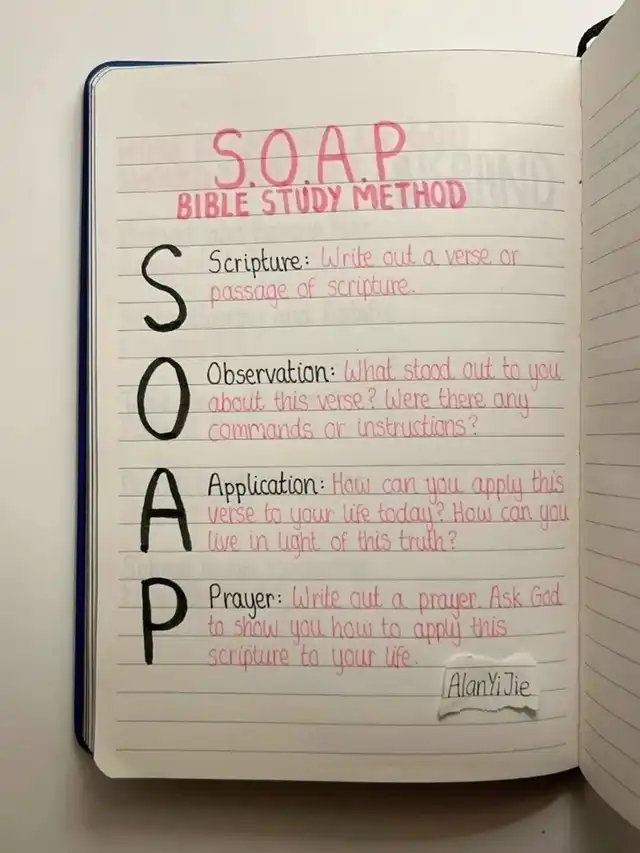 S.O.A.P
BIBLE STUDY METHOD
S
Scripture: Write out a verse or
passage of scripture.
O
Observation: What stood out to you
about this verse? Were there any
commands or instructions?
A
Application: How can you apply this
verse to your life today? How can you
live in light of this truth?
P
Prayer: Write out a prayer. Ask God
to show you how to apply this
scripture to your life.
AlanYiJie